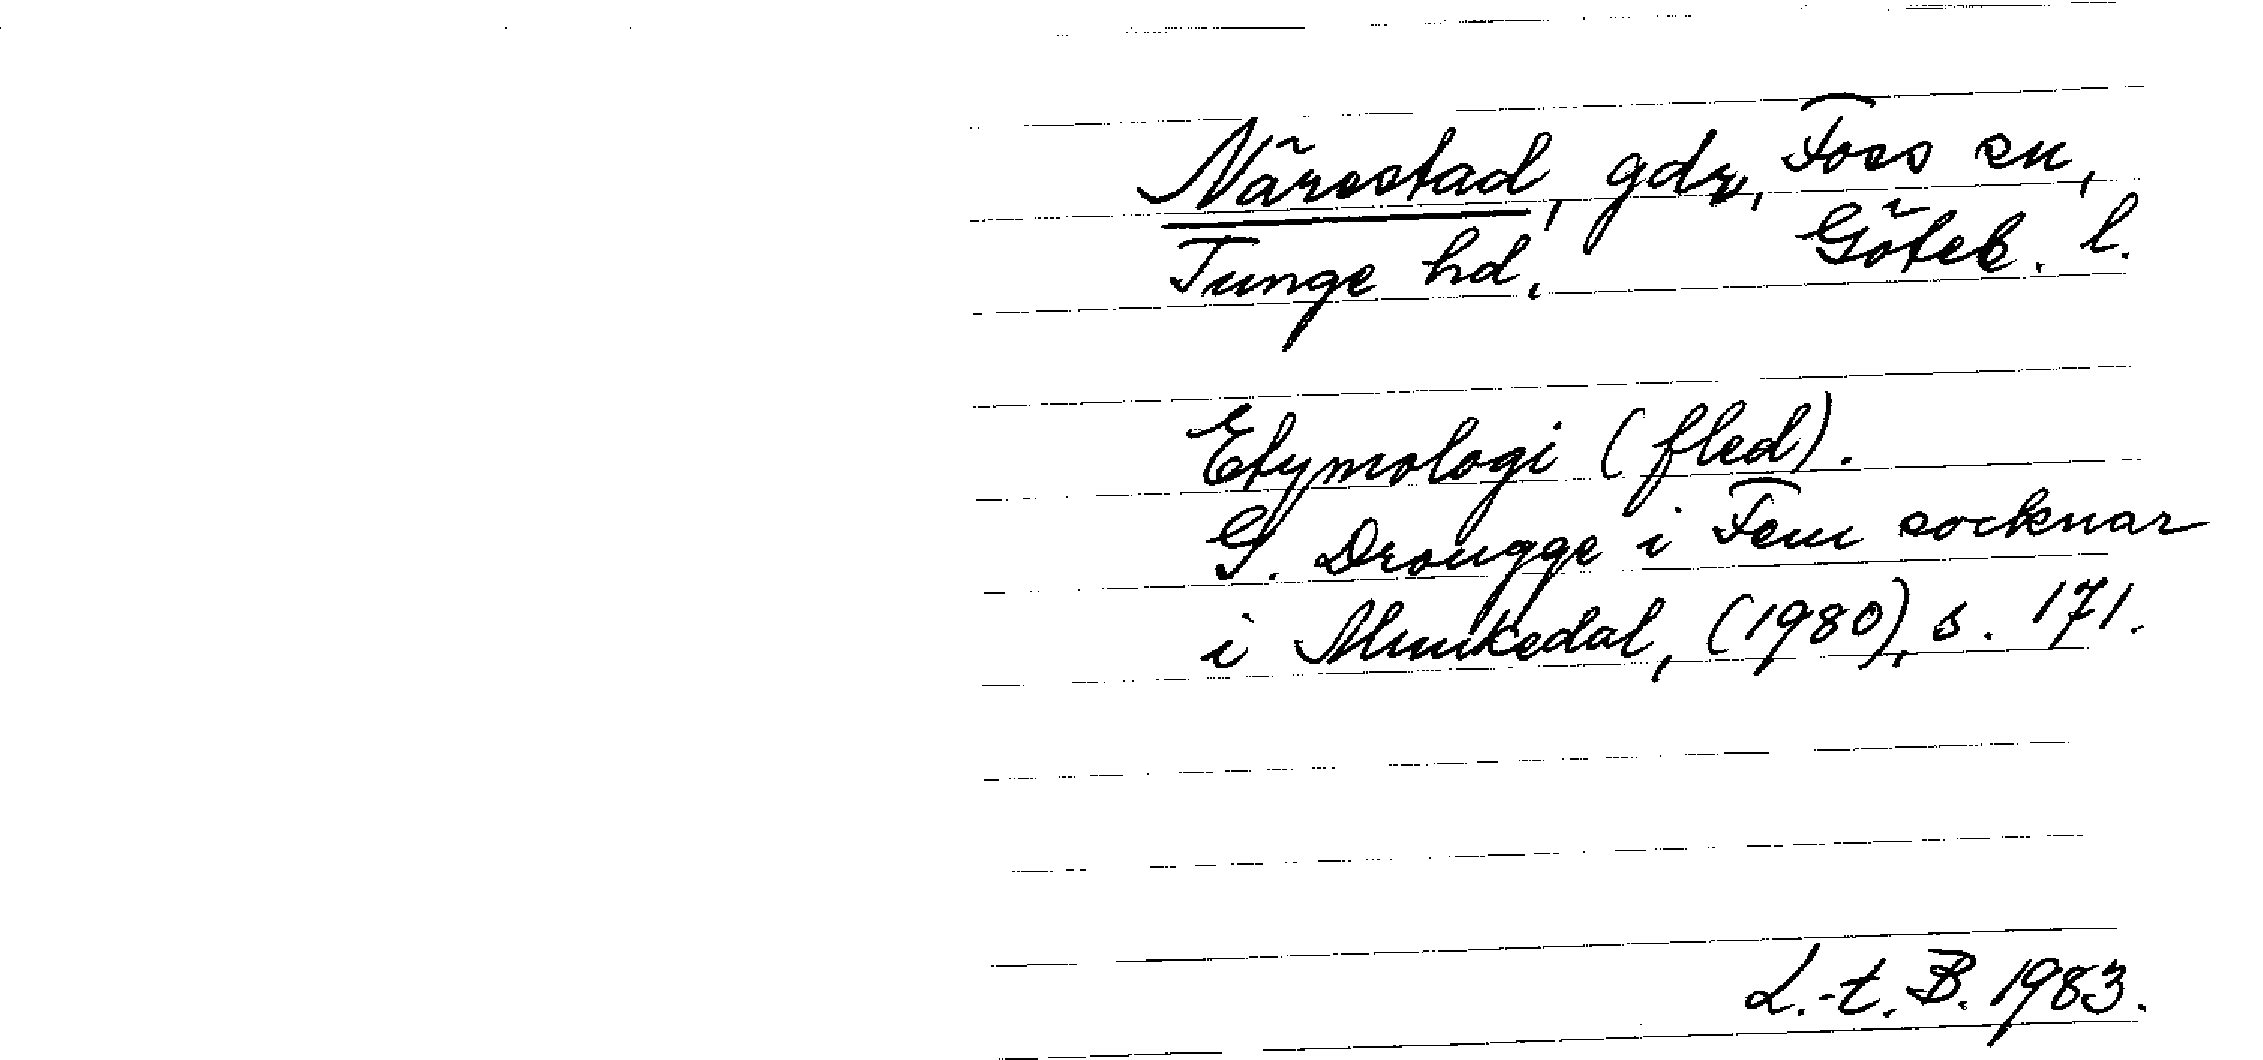 Närestad, gdr, Foss sn,
Tunge hd, Göteb. l.
Etymologi (fled).
G. Drougge i Fem socknar
i Munkedal, (1980), s. 171.
L.-t. B. 1983.